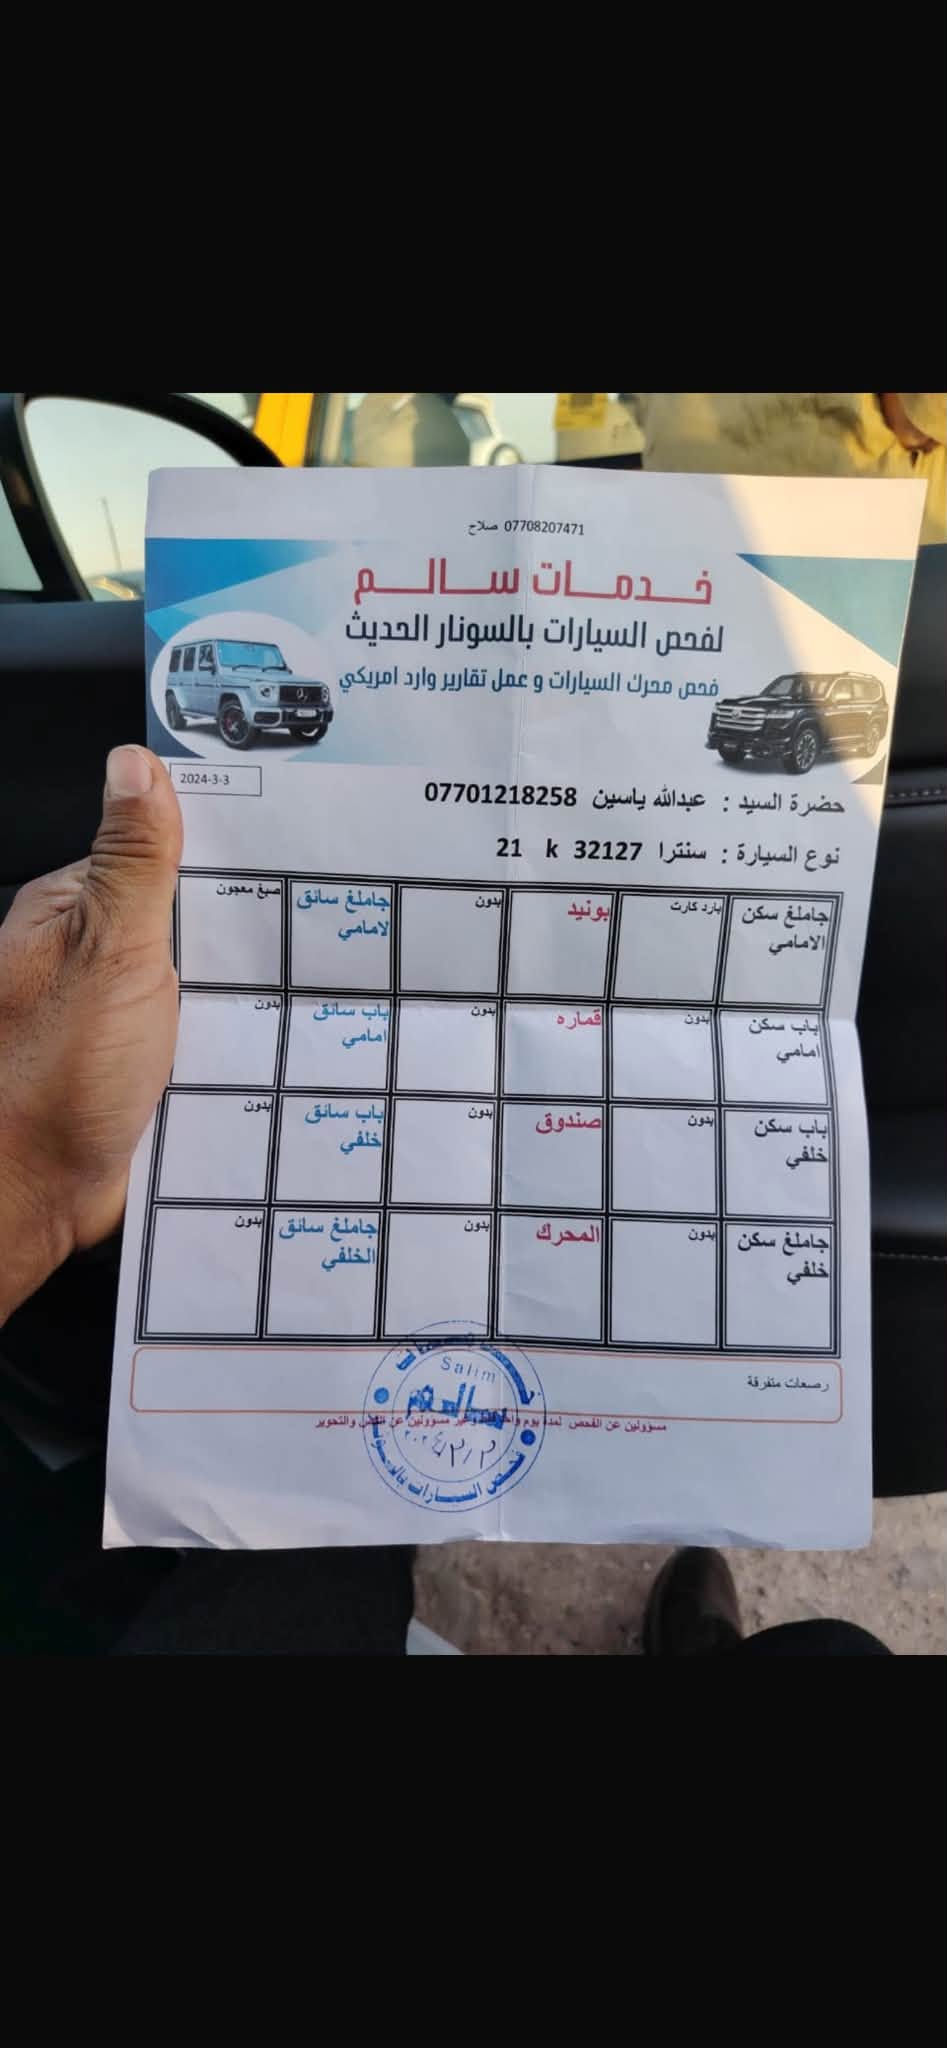 07708207471 صلاح
خدمات سالم
لفحص السيارات بالسونار الحديث
فحص محرك السيارات و عمل تقارير وارد امريكي
2024-3-3
حضرة السيد : عبدالله ياسين 07701218258
نوع السيارة : سنترا 32127 k 21
جاملغ سكن الامامي
بارد كارت
بونيد
بدون
جاملغ سائق لامامي
صبغ معجون
باب سكن امامي
بدون
قماره
بدون
باب سائق امامي
بدون
باب سكن خلفي
بدون
صندوق
بدون
باب سائق خلفي
بدون
جاملغ سكن خلفي
بدون
المحرك
بدون
جاملغ سائق الخلفي
بدون
رصعات متفرقة
مسؤولين عن الفحص لمدة يوم وغير مسؤولين عن والتحوير
Salim
سالم
فحص السيارات